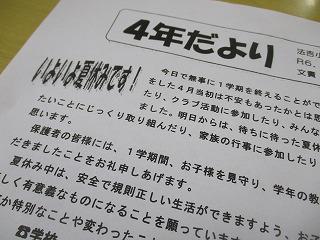 4年だより
法吉小
R6.
文責
いよいよ夏休みです！
今日で無事に1学期を終えることがで
をした4月当初は不安もあったかとは思
たり、クラブ活動に参加したり、みんな
ました。明日からは、待ちに待った夏休
たいことにじっくり取り組んだり、家族の行事に参加したり
思います。
保護者の皆様には、1学期間、お子様を見守り、学年の教
だきましたことをお礼申しあげます。
夏休み中は、安全で規則正しい生活ができますよう、お子
しく有意義なものになることを願っています。
か特別なことや変わったこ
☎学校